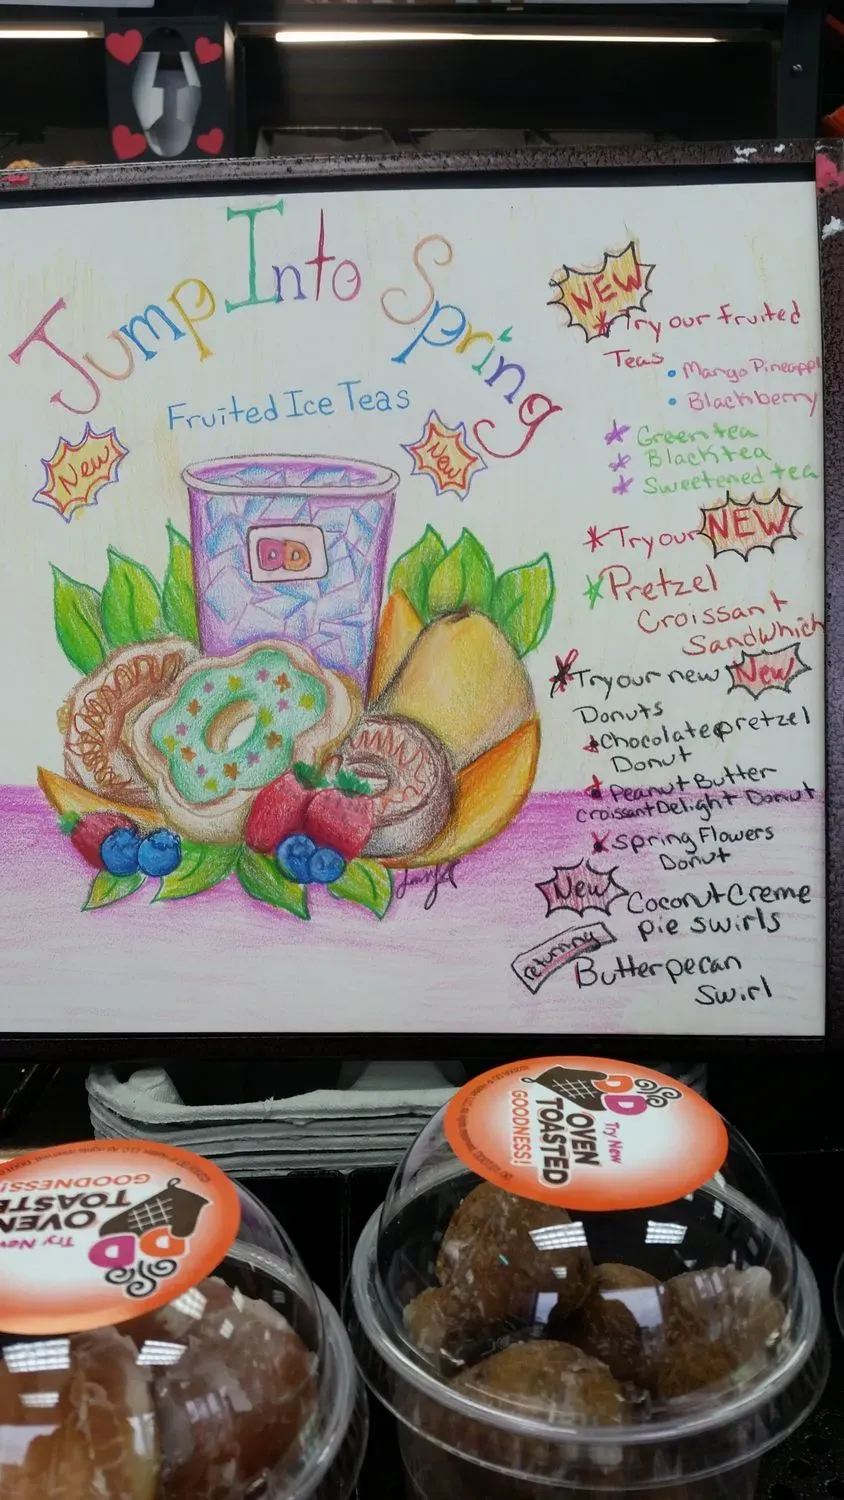 Jump Into Spring
Fruited Ice Teas
New
New
DD
NEW
* Try our fruited
Teas
• Mango Pineapple
• Blackberry
* Green tea
* Black tea
* Sweetened tea
* Try our NEW
* Pretzel
Croissant
Sandwhich
* Try our new New
Donuts
* Chocolate pretzel
Donut
* Peanut Butter
Croissant Delight Donut
* Spring Flowers
Donut
New Coconut Creme
pie swirls
returning Butter pecan
Swirl
DD
Try New
OVEN
TOASTED
GOODNESS!
DD
Try New
OVEN
TOASTE
GOODNESS!